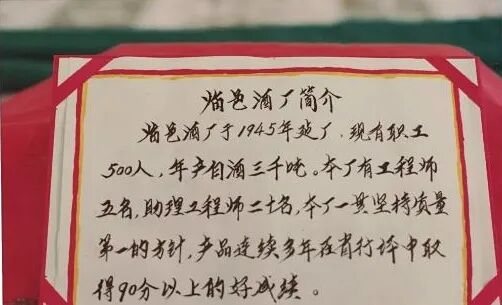 临邑酒厂简介
临邑酒厂于1945年建厂，现有职工
500人，年产白酒三千吨。本厂有工程师
五名，助理工程师二十名，本厂一贯坚持质量
第一的方针，产品连续多年在省行评中取
得90分以上的好成绩。